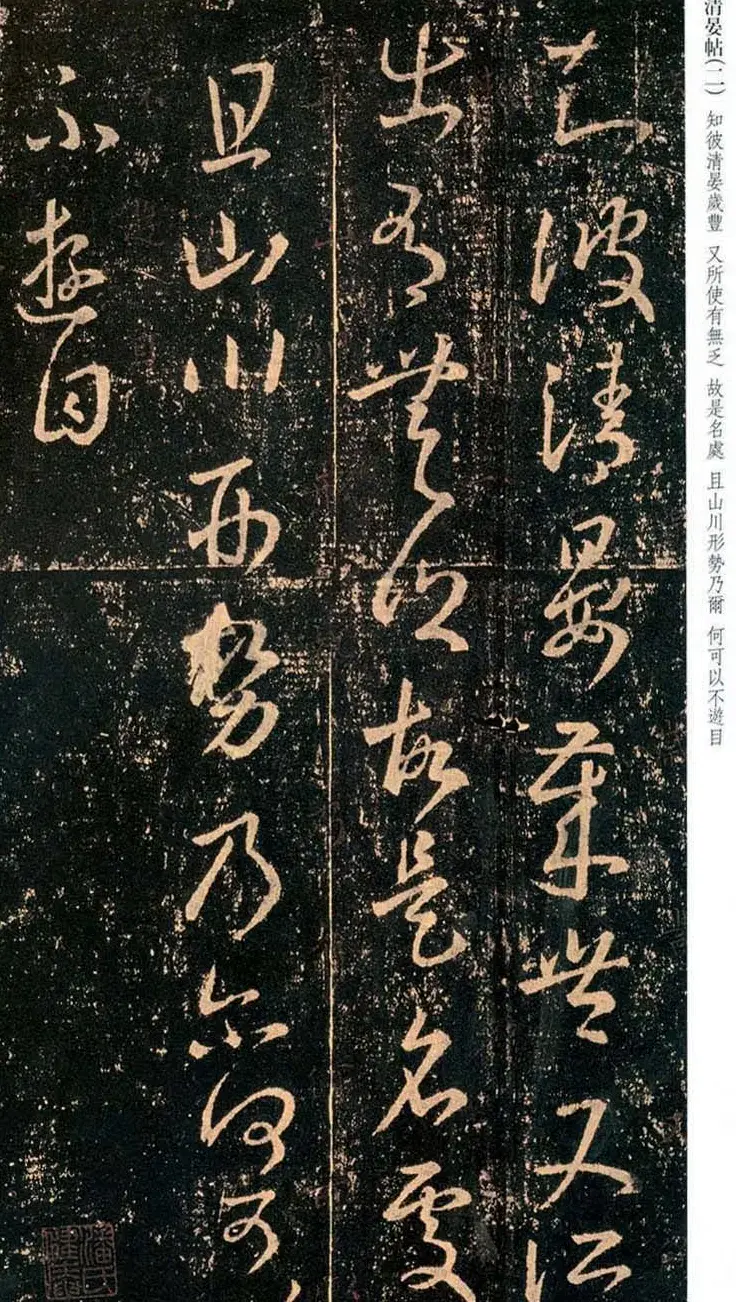 清晏帖(二) 知彼清晏歲豐 又所使有無乏 故是名處 且山川形勢乃爾 何可以不遊目
知彼清晏歲豐又所
出有無乏故是名處
且山川形勢乃尔何可以
不遊目